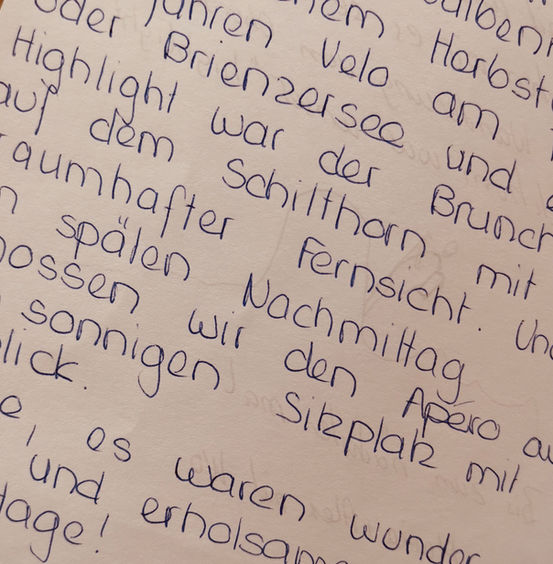 oder fuhren Velo am
Brienzersee und
Highlight war der Brunch
auf dem Schilthorn mit
raumhafter Fernsicht. Und
n späten Nachmittag
ossen wir den Apéro au
sonnigen Sitzplatz mit
lick.
e, es waren wunder
und erholsam
age!